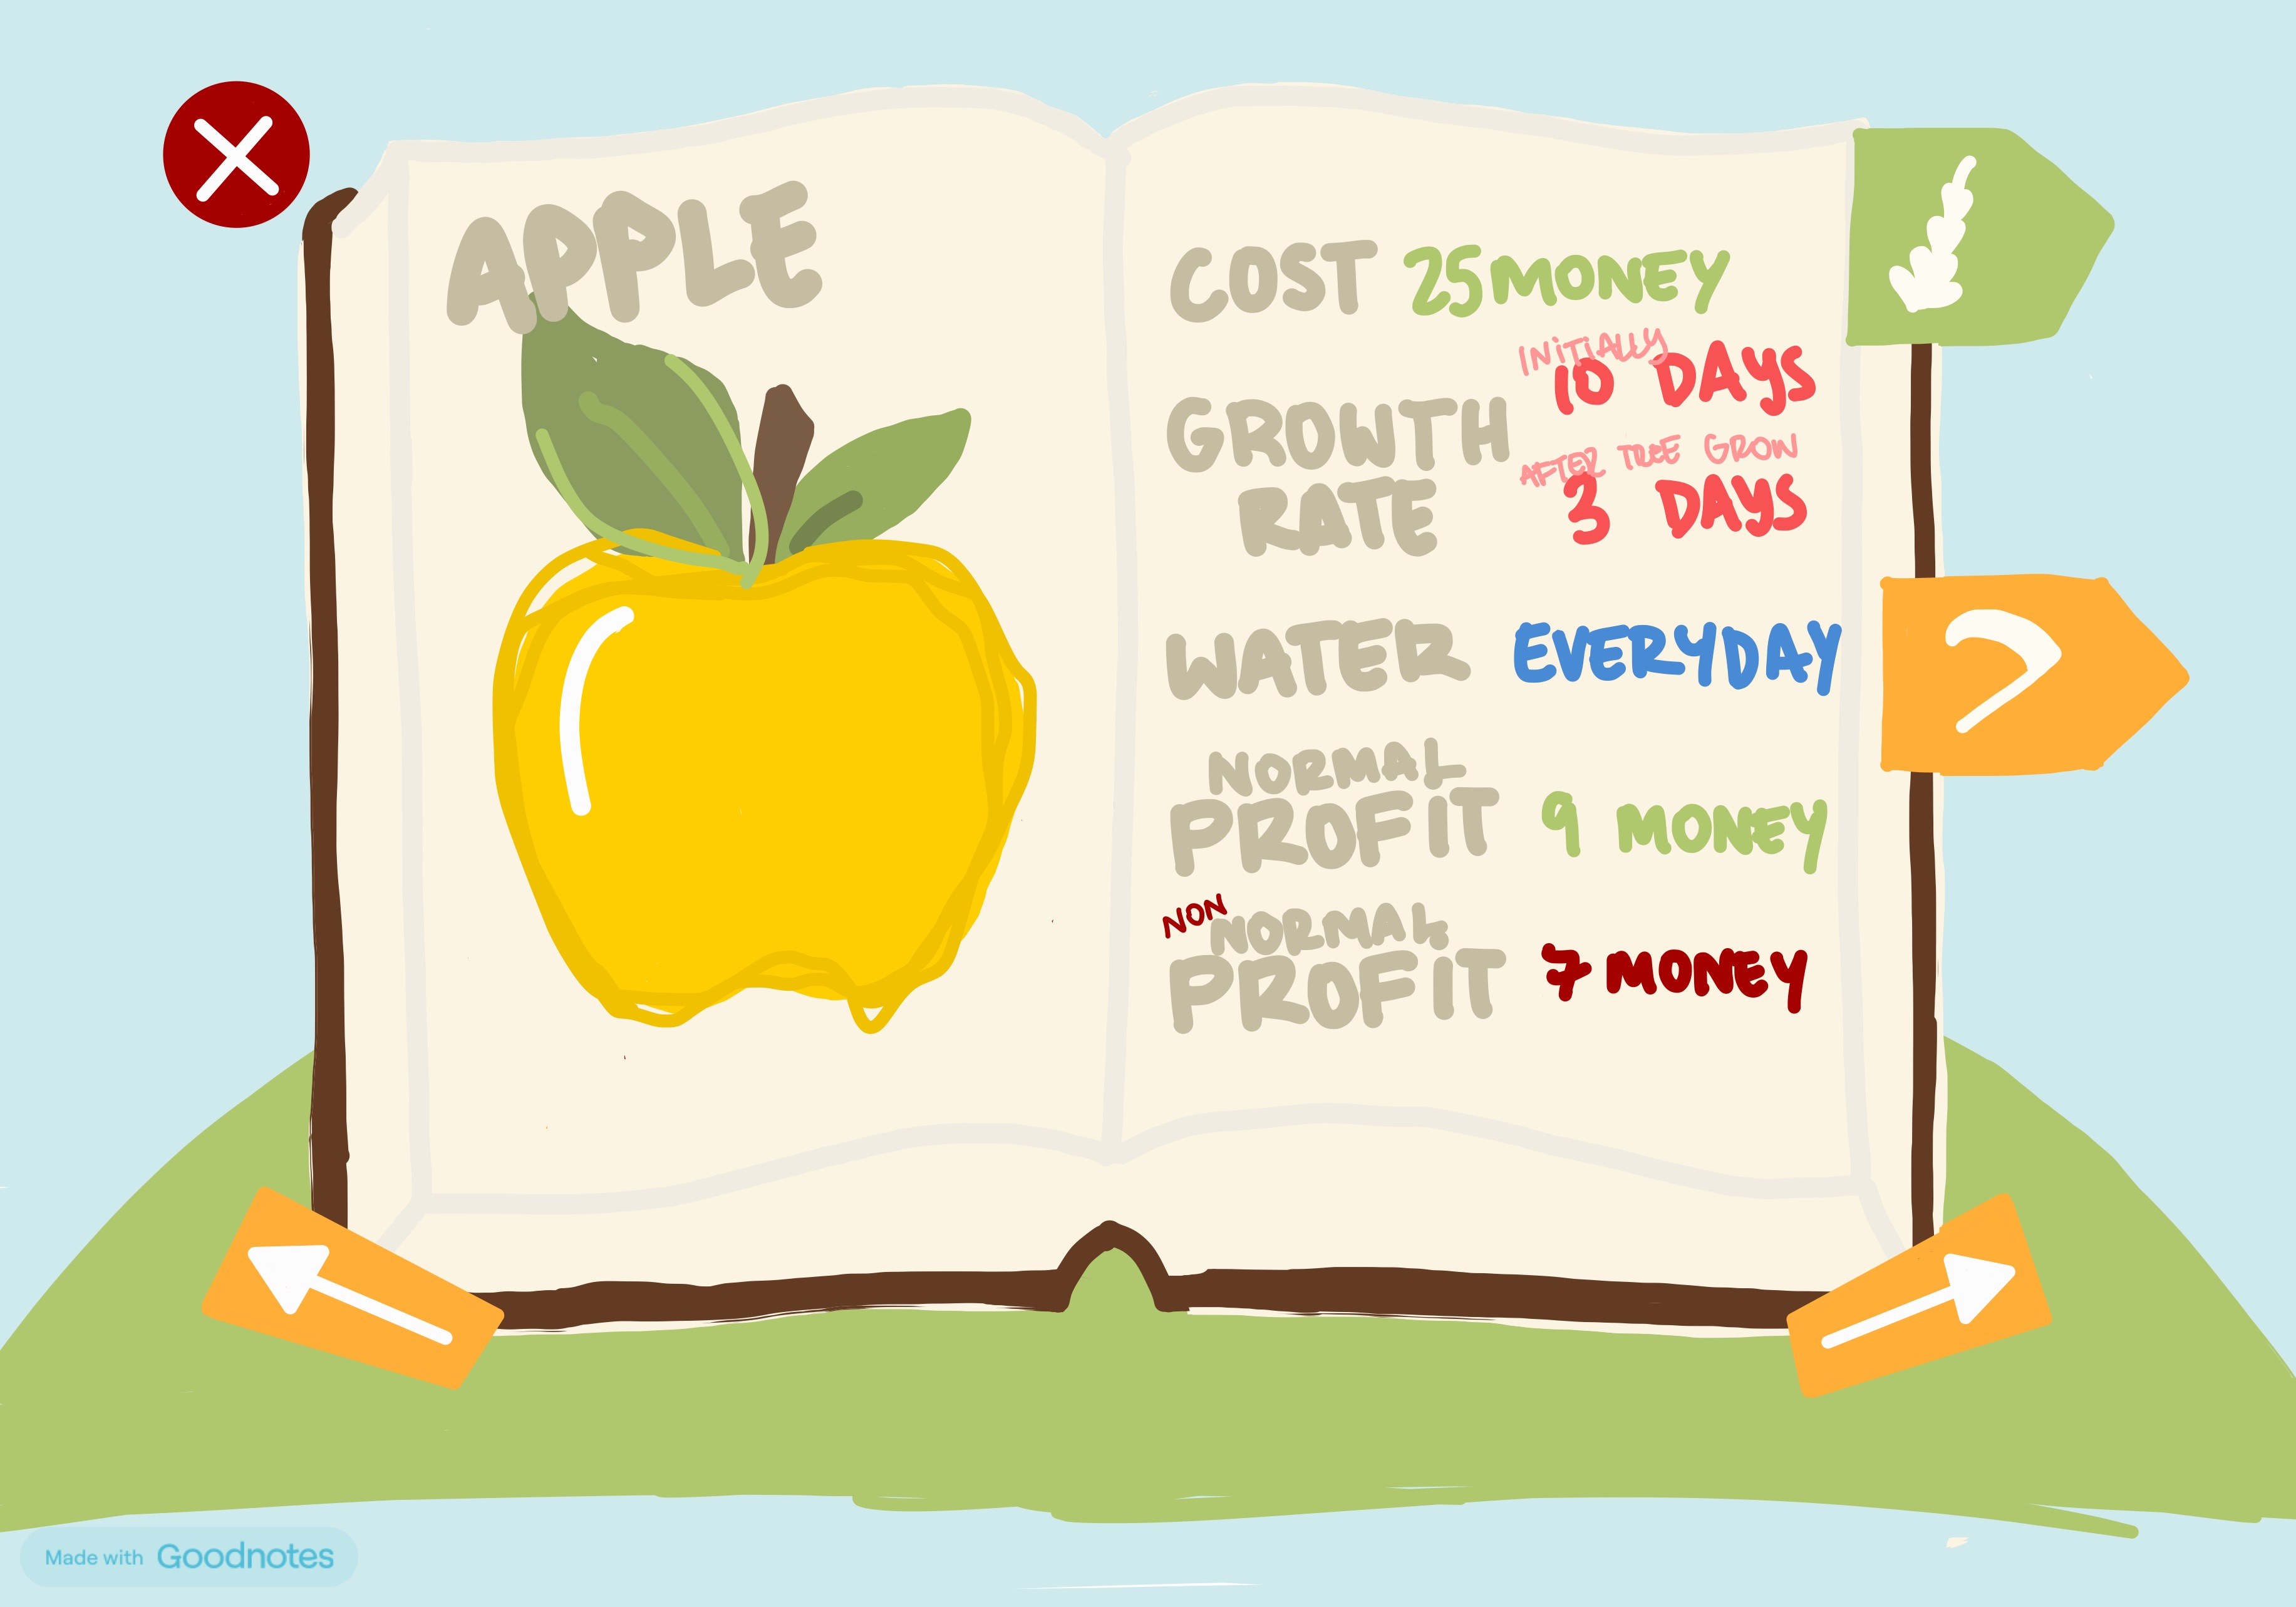 APPLE
COST 25 MONEY
INITIALLY
10 DAYS
GROWTH
RATE
AFTER TREE GROW
3 DAYS
WATER EVERYDAY
NORMAL
PROFIT 9 MONEY
NON NORMAL
PROFIT 7 MONEY
Made with Goodnotes